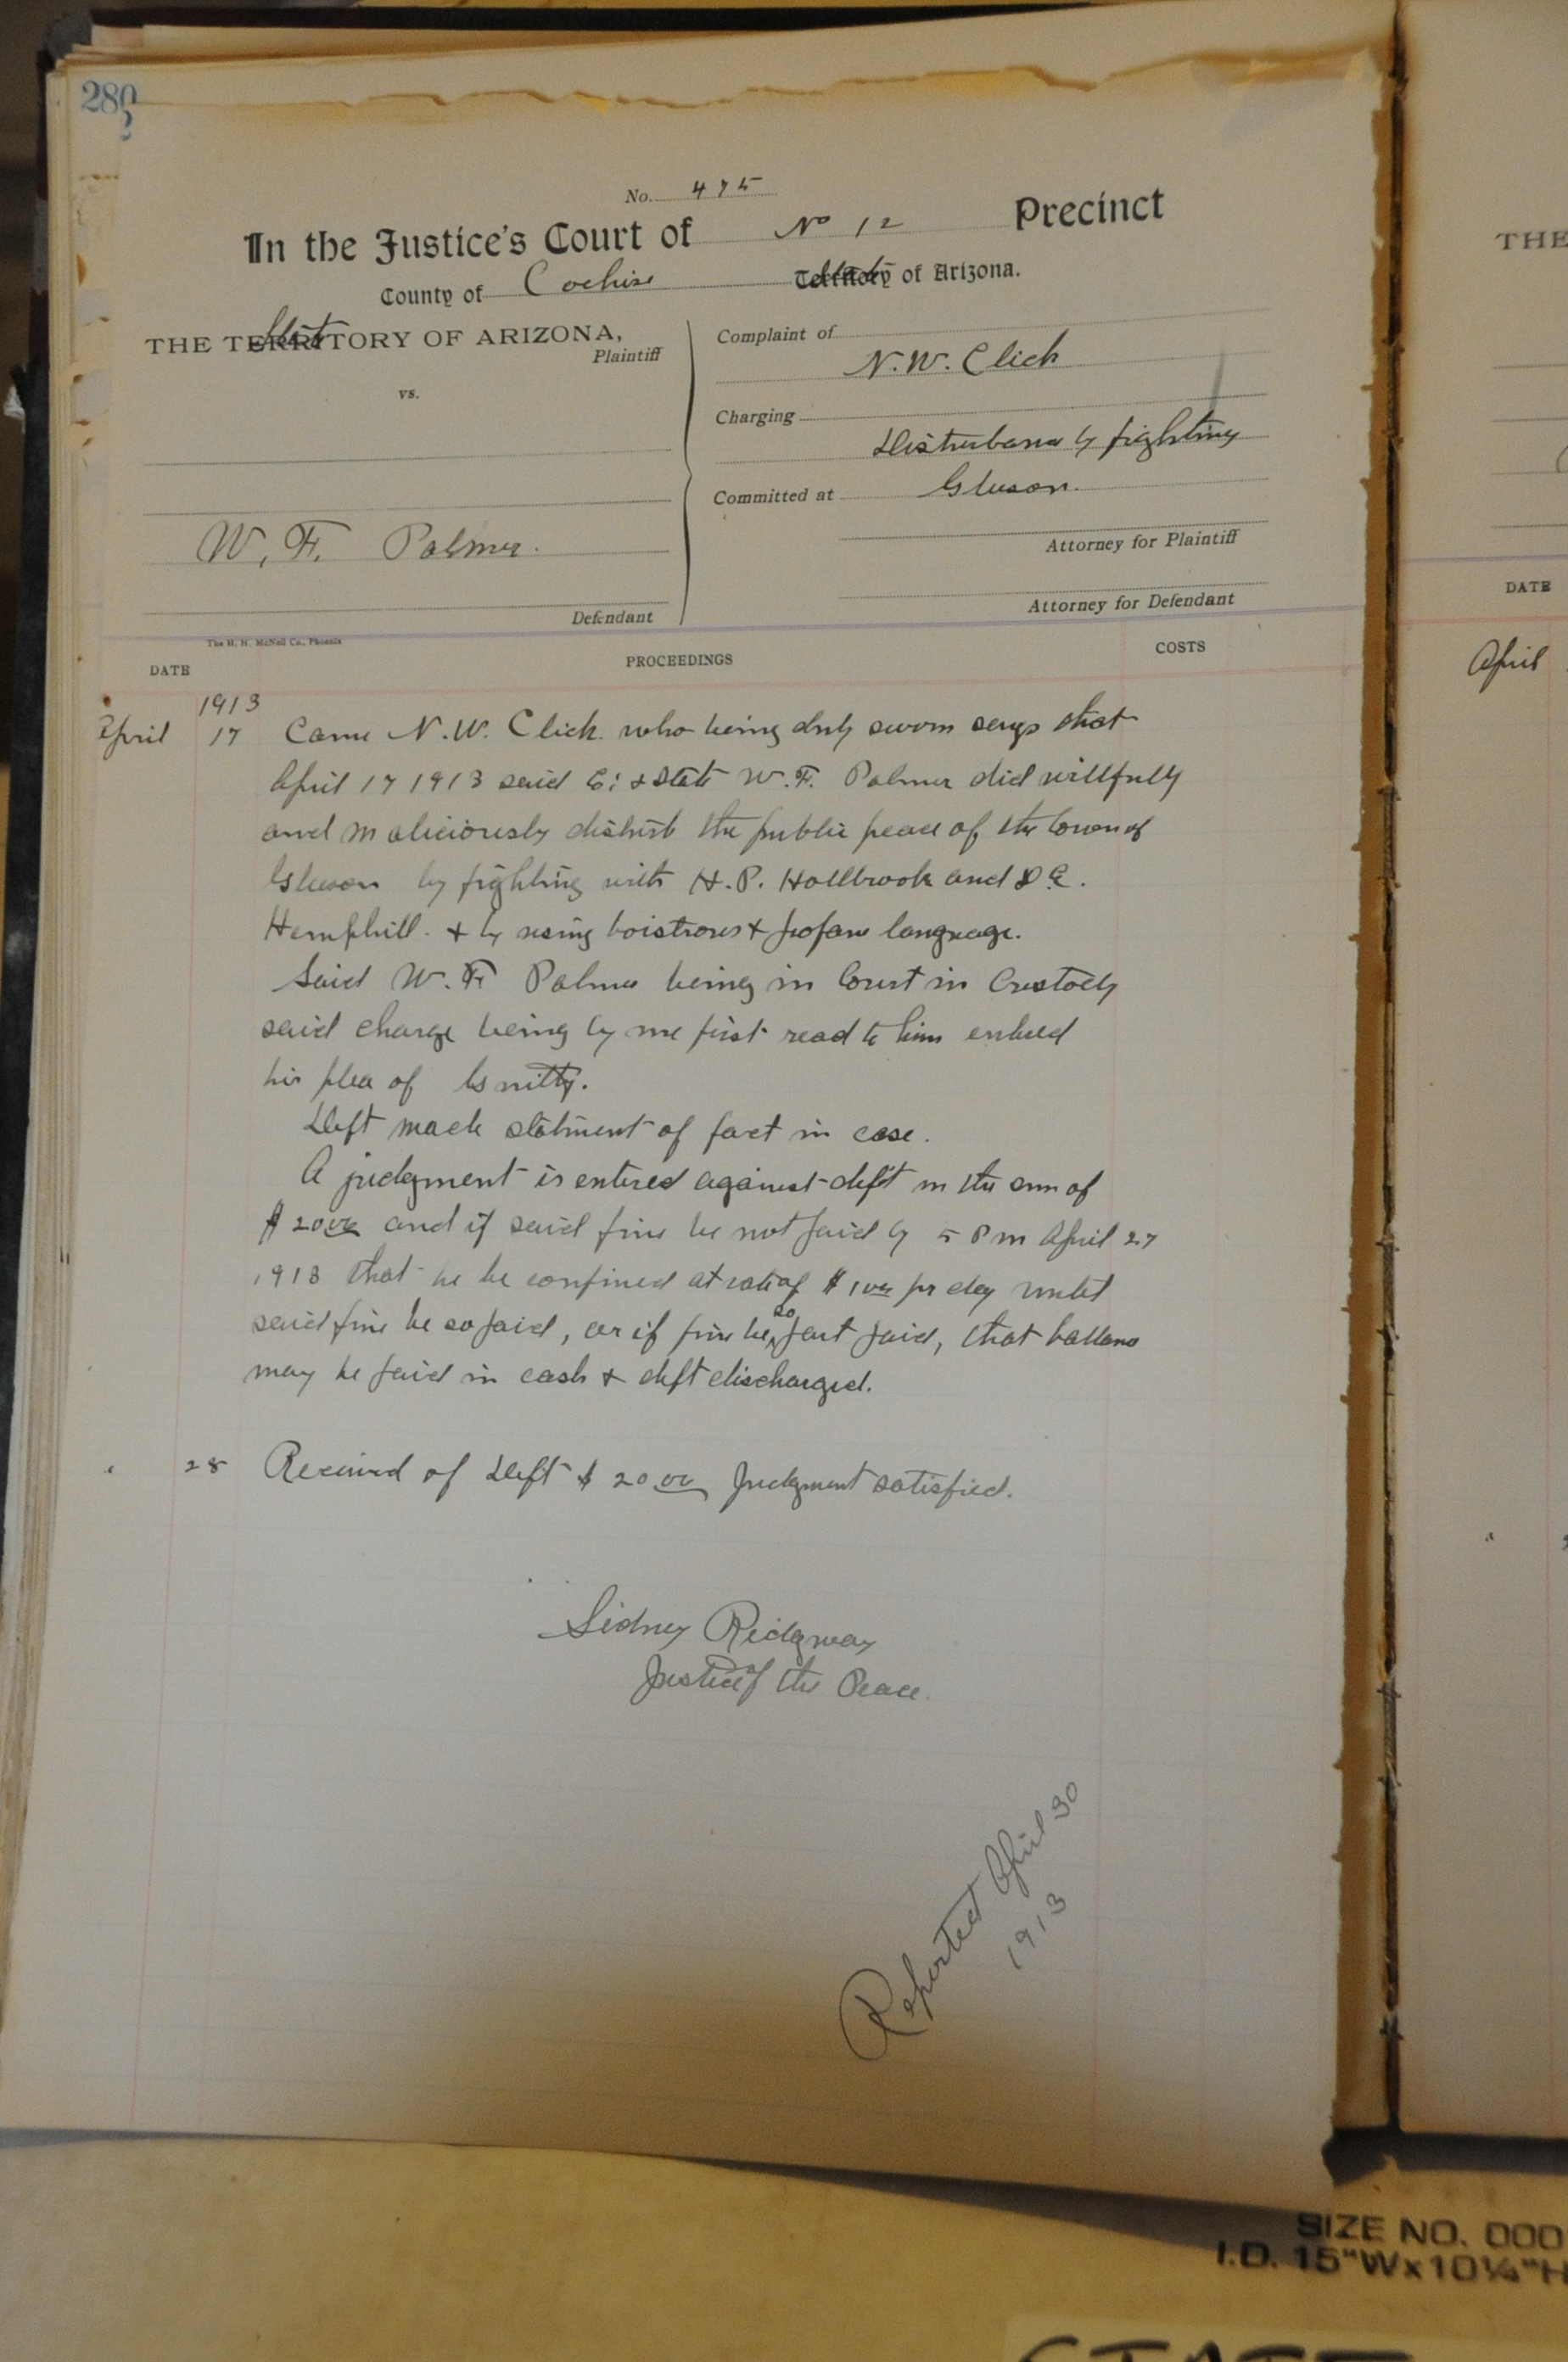 280
No. 475
In the Justice's Court of No 12 Precinct
County of Cochise State of Arizona.
THE State OF ARIZONA,
Plaintiff
vs.
W. F. Palmer.
Defendant
Complaint of
N. W. Click
Charging
Disturbance by fighting
Committed at Gleeson.
Attorney for Plaintiff
Attorney for Defendant
The H. H. McNeil Co., Phoenix
DATE PROCEEDINGS COSTS
1913
April 17 Came N. W. Click. who being duly sworn says that
April 17 1913 said Co: & State W. F. Palmer did willfully
and maliciously disturb the public peace of the town of
Gleeson by fighting with H. P. Hollbrook and D. E.
Hemphill. & by using boistrous & profane language.
Said W. F. Palmer being in Court in Custody
said charge being by me first read to him entered
his plea of Guilty.
Deft made statment of fact in case.
A judgment is entered against deft in the sum of
$ 20.00 and if said fine be not paid by 5 P m April 27
1913 that he be confined at rate of $ 1.00 pr day until
said fine be so paid, or if fine be so part paid, that ballanc
may be paid in cash & deft discharged.
" 28 Received of Deft $ 20.00 Judgment satisfied.
Sidney Ridgway
Justice of the Peace.
Reported April 30
1913
THE
DATE
April
SIZE NO. 000
I.D. 15"Wx10¼"H
STATE